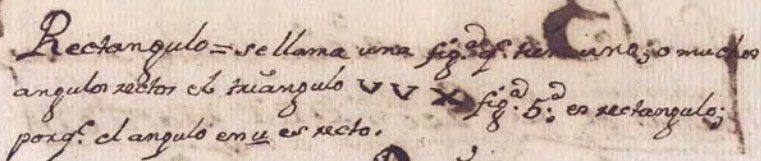 Rectangulo = se llama una fig.ª q.e tiene uno, o muchos
angulos rectos el triángulo v v x fig.ª 5.ª es rectangulo;
porq.e el angulo en u es recto.